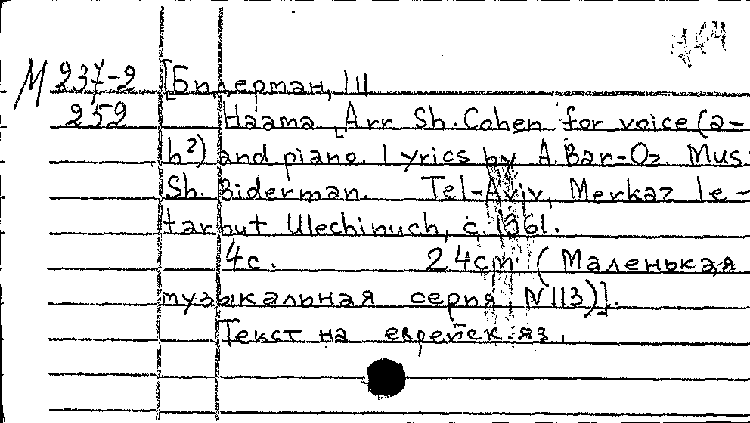 М 237-2 [Бидерман, Ш
252 Haama [Arr. Sh. Cohen for voice (a-
h²) and piano. Lyrics by A. Bar-Oz. Mus.
Sh. Biderman. Tel-Aviv, Merkaz le-
tarbut Ulechinuch, c. 1961.
4с. 24cm (Маленькая
музыкальная серия N113)].
Текст на еврейск. яз.